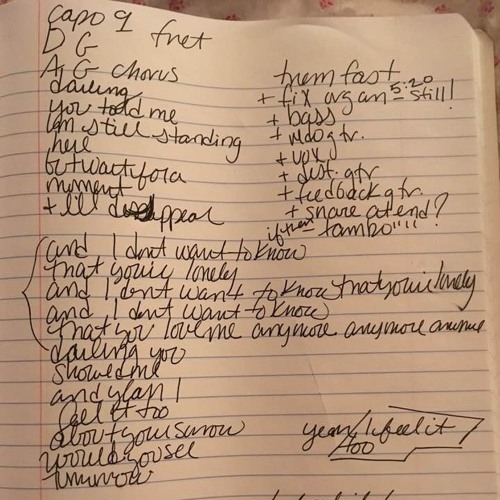 capo 9 fret
D G
A, G chorus
darling
you told me
Im still standing
here
but wait for a
moment
+ I'll disappear
trem fast
+ fix organ 5:20 still!
+ bass
+ wdo gtr.
+ vox
+ dist. gtr
+ feedback gtr.
+ snare at end?
if then tambo """ !
and I dont want to know
that you're lonely
and I dont want to know that you're lonely
and I dont want to know
that you love me anymore anymore anymore
darling you
showed me
and I
feel it too
about your sorrow
would you see
tomorrow
yeah, I feel it
too